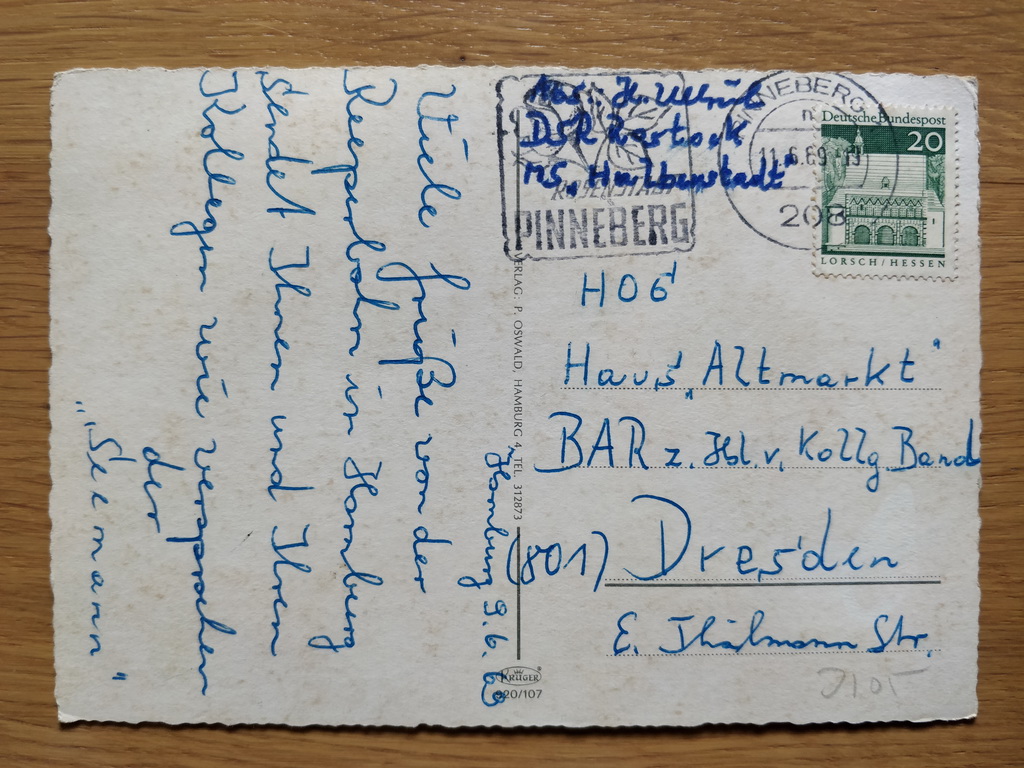 Hamburg 9.6.69
Viele Grüße von der
Reeperbahn in Hamburg
Sendet Ihnen und Ihren
Kolegen wie versprochen
der
"Seemann"
VERLAG: P. OSWALD, HAMBURG 4, TEL. 312873
KRÜGER
920/107
Abs. H.
DSR Rostock
MS. "Halberstadt"
ROSENSTADT
PINNEBERG
PINNEBERG
11.6.69
208
Deutsche Bundespost
20
LORSCH/HESSEN
HOG
Haus "Altmarkt"
BAR z. Hd. v. Kollg. Band
(801) Dresden
E. Thälmann Str.